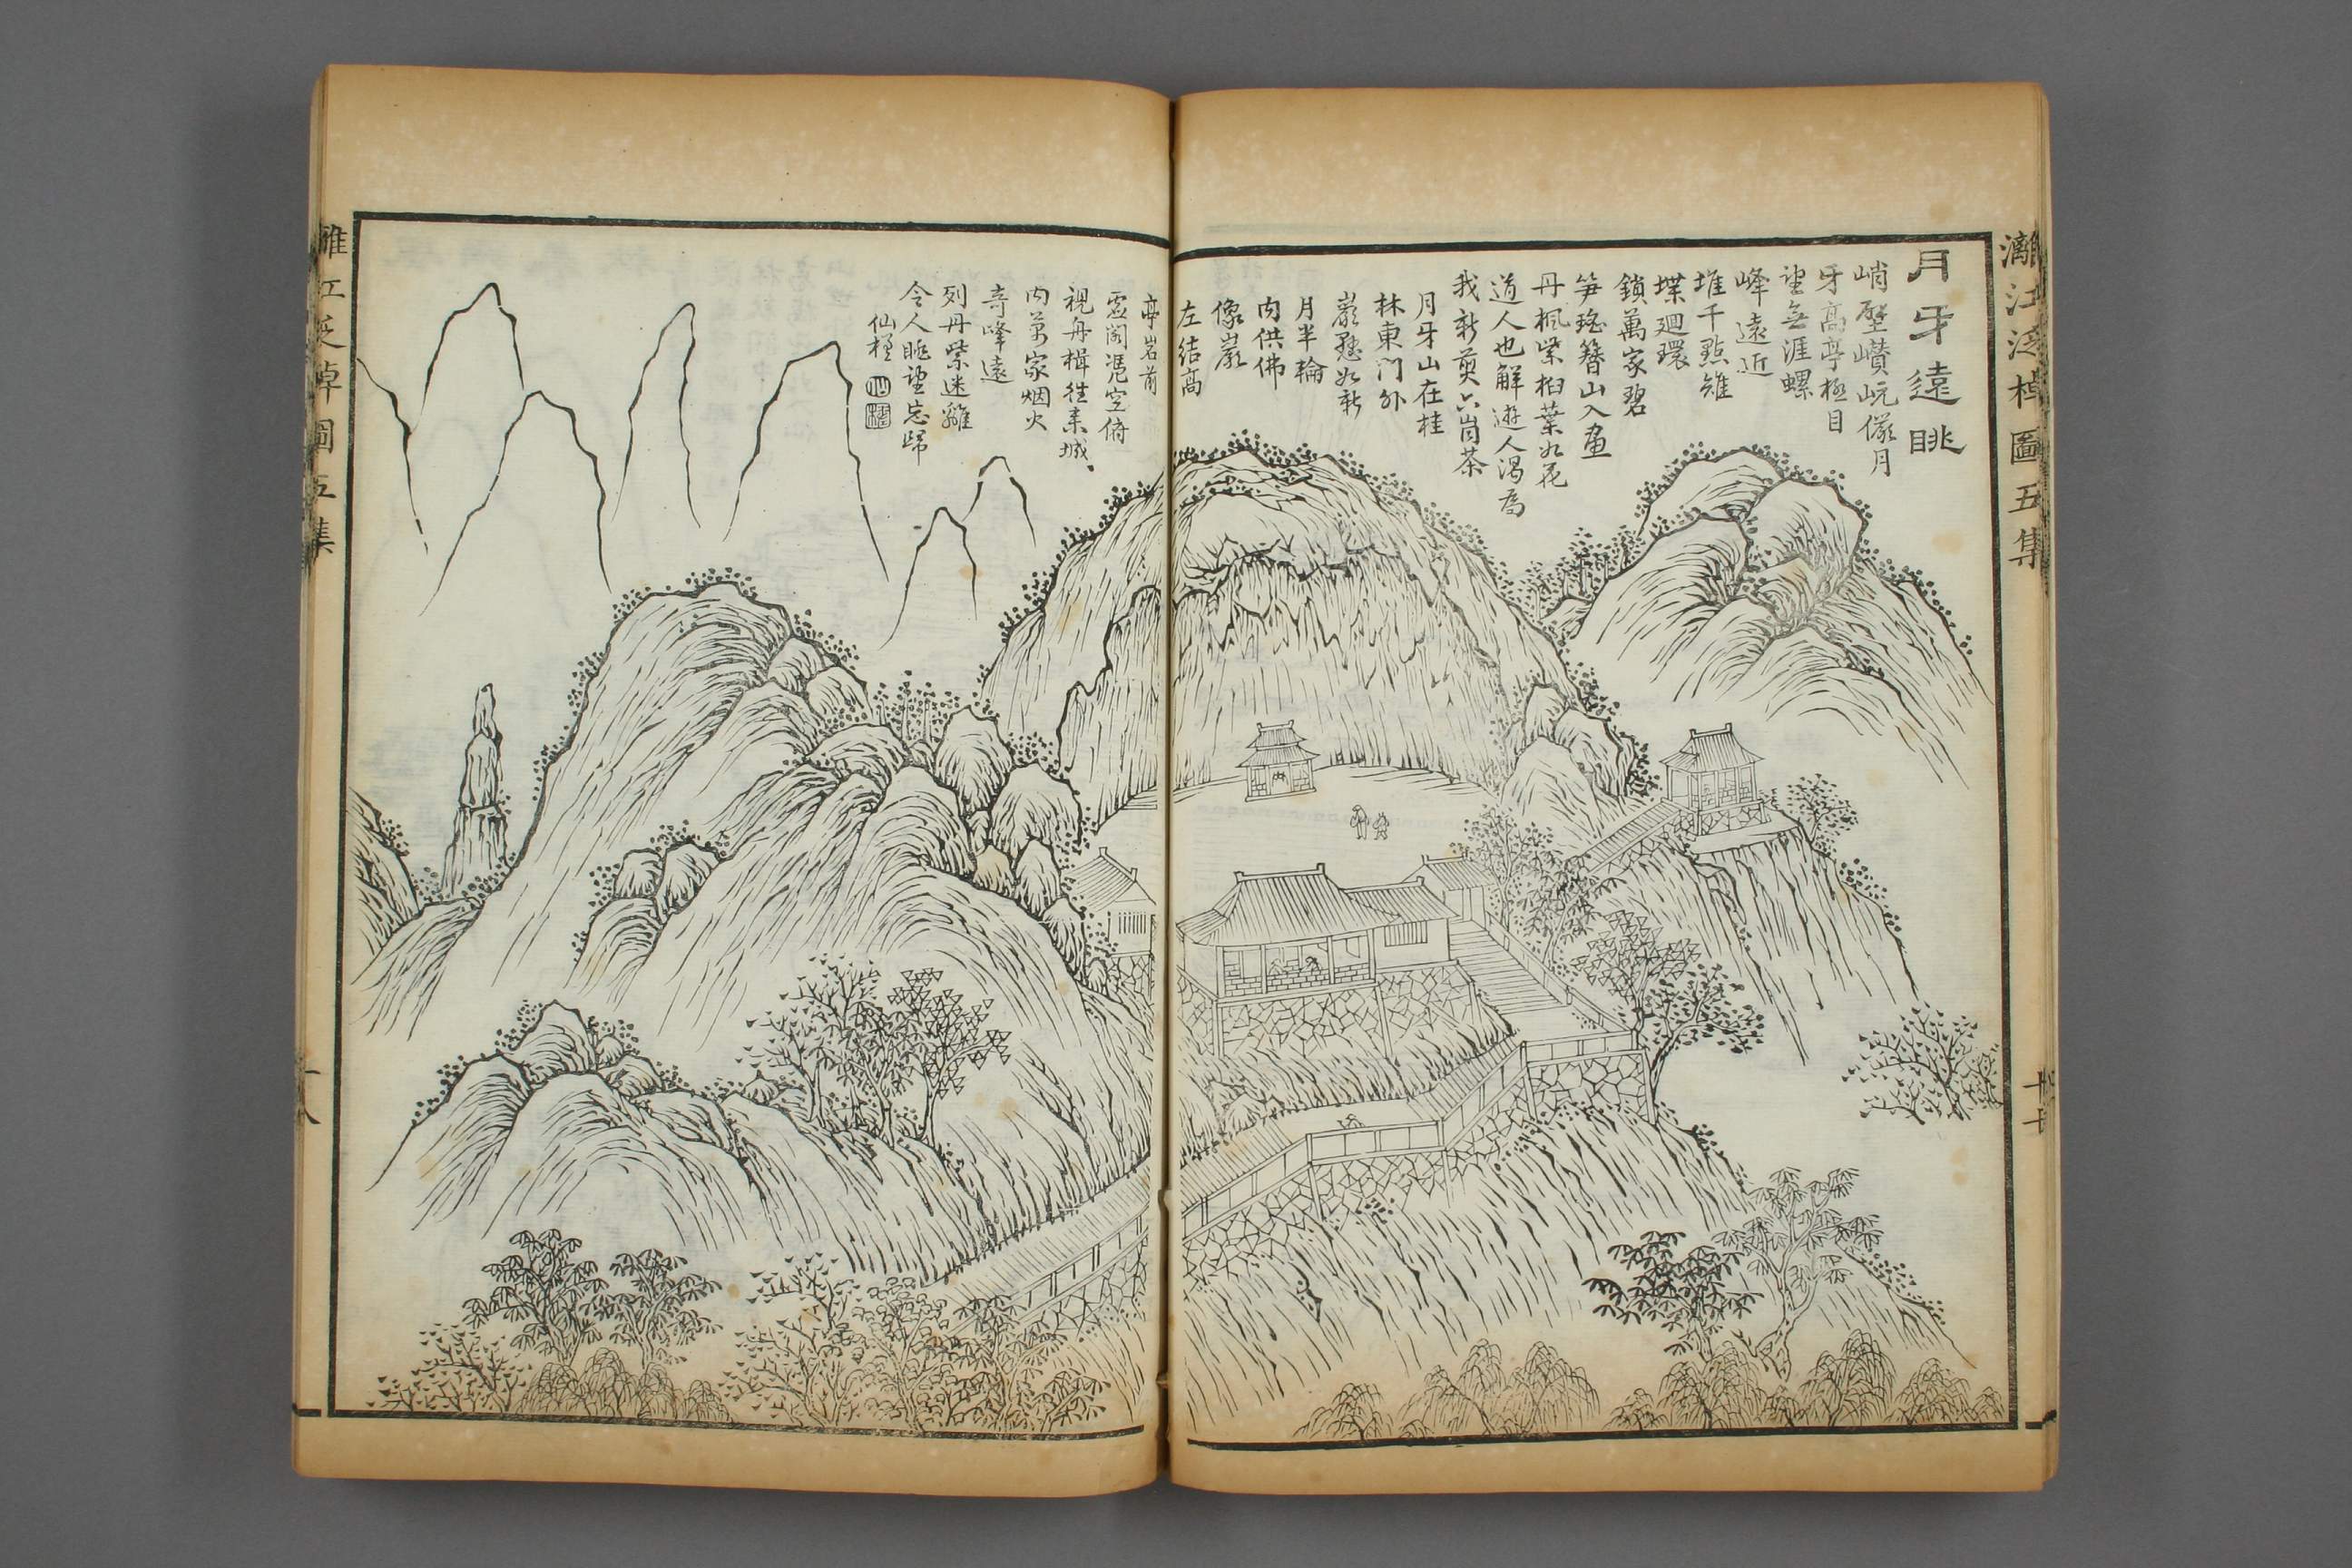 灕江泛棹圖五集
月牙遠眺
峭壁巑岏儼月
牙高亭極目
望無涯螺
峰遠近
堆千點雉
堞迴環
鎖萬家碧
笋瑤簪山入畫
丹楓紫桕葉如花
道人也解遊人渴為
我新煎六峝茶
月牙山在桂
林東門外
巖懸如新
月半輪
內供佛
像巖
左結高
亭岩前
雲閣憑空俯
視舟楫往来城
內萬家烟火
奇峰遠
列丹紫迷離
令人眺望忘歸
仙槎
灕江泛棹圖五集
十八